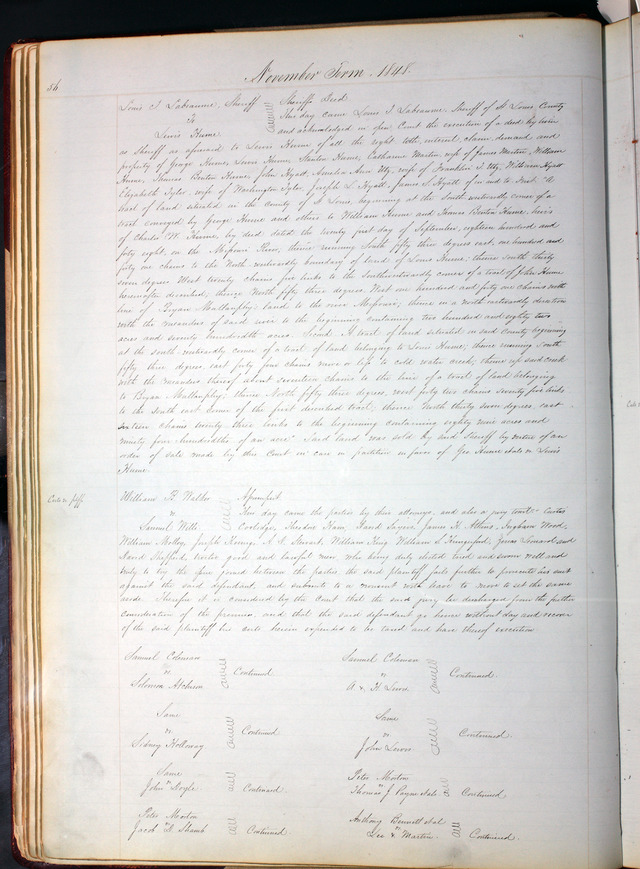 56
November Term 1848.
Louis T. Labeaume, Sheriff Sheriffs Deed
to This day came Louis T. Labeaume, Sheriff of St Louis County
Lewis Hume and acknowledged in open Court the execution of a deed by him
as Sheriff as aforesaid to Lewis Hume of all the right title, interest, claim, demand and
property of George Hume, Lewis Hume, Stanton Hume, Catharine Martin, wife of James Martin, William
Hume, Thomas Benton Hume, John Hyatt, Amelia Ann Utty, wife of Franklin T. Utty, William Hyatt
Elizabeth Tyler, wife of Washington Tyler, Joseph L. Hyatt, James S. Hyatt of in and to First "A
tract of land situated in the county of St Louis, beginning at the South westwardly corner of a
tract conveyed by George Hume and others to William Hume and Thomas Benton Hume, heirs
of Charles W. Hume, by deed dated the twenty first day of September, eighteen hundred and
forty eight, on the Missouri River, thence running South fifty three degrees east, one hundred and
forty one chains to the North westwardly boundary of land of Lewis Hume; thence south thirty
seven degrees West twenty chains five links to the southwestwardly corner of a tract of John Hume
hereinafter described; thence North fifty three degrees, West one hundred and forty one chains with
line of Bryan Mullanphy's land to the river Missouri; thence in a north eastwardly direction
with the meanders of said river to the beginning containing two hundred and eighty two
acres and seventy hundredths acres. Second. A tract of land situated in said county beginning
at the south westwardly corner of a tract of land belonging to Lewis Hume; thence running South
fifty three degrees, east forty four chains more or less to cold water creek; thence up said creek
with the meanders thereof about seventeen chains to the line of a tract of land belonging
to Bryan Mullanphy; thence North fifty three degrees, west forty two chains seventy five links
to the south east corner of the first described tract; thence North thirty seven degrees, east
sixteen chains twenty three links to the beginning containing eighty nine acres and
ninety four hundredths of an acre" Said land was sold by said Sheriff by virtue of an
order of sale made by this Court in case in partition in favor of Geo Hume et als vs Lewis
Hume.
Costs vs plff.
William R. Walker Assumpsit.
vs This day came the parties by their attorneys, and also a jury to wit: Curtis
Samuel Wells Coolidge, Theodore Ham, David Sayers, James H. Atkins, Ingham Wood,
William Motley, Joseph Koenig, A. V. Stewart, William King, William S. Hungerford, James Leonard and
David Shepherd, twelve good and lawful men who being duly elected tried and sworn well and
truly to try the issue joined between the parties, the said plaintiff fails further to prosecute his suit
against the said defendant, and submits to a nonsuit with leave to move to set the same
aside. Therefore it is considered by the Court that the said jury be discharged from the further
consideration of the premises, and that the said defendant go hence without day and recover
of the said plaintiff his costs herein expended to be taxed and have thereof execution.
Samuel Coleman
vs Continued
Solomon Atchison
Samuel Coleman
vs Continued.
A & H
Same
vs Continued.
Sidney Holloway
Same
vs Continued.
John
Same
vs
John Doyle Continued.
Peter Morton
vs
Thomas J. Payne et als Continued.
Peter Morton
vs
Jacob Continued.
Anthony Bennett et al
vs
Lee & Martin Continued.